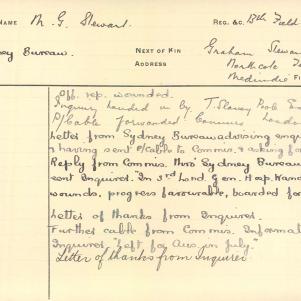 NAME M. G. Stewart. REG. &C. 13th Field
Sydney Bureau. NEXT OF KIN Graham Stewar
ADDRESS Northcote
Off. rep. wounded.
Enquiry handed in by T. Slaney Poole
P/Cable forwarded Commis London
Letter from Sydney Bureau advising enqu
& having sent P/Cable to Commis. & asking for
Reply from Commis. thro' Sydney Bureau
sent Inquirer. "In 3rd Lond. Gen. Hosp. Wands
wounds. progress favourable, boarded for
Letter of thanks from Inquirer.
Further cable from Commis. Informat
Inquirer. "Left for Aus. in July."
Letter of thanks from Inquirer